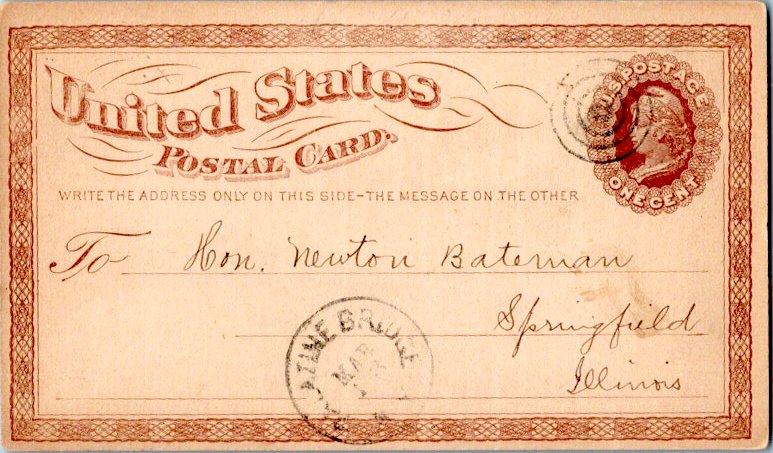 United States
Postal Card.
U.S. POSTAGE
ONE CENT
WRITE THE ADDRESS ONLY ON THIS SIDE-THE MESSAGE ON THE OTHER
To Hon. Newton Bateman
Springfield
Illinois
PALATINE BRIDGE
MAR